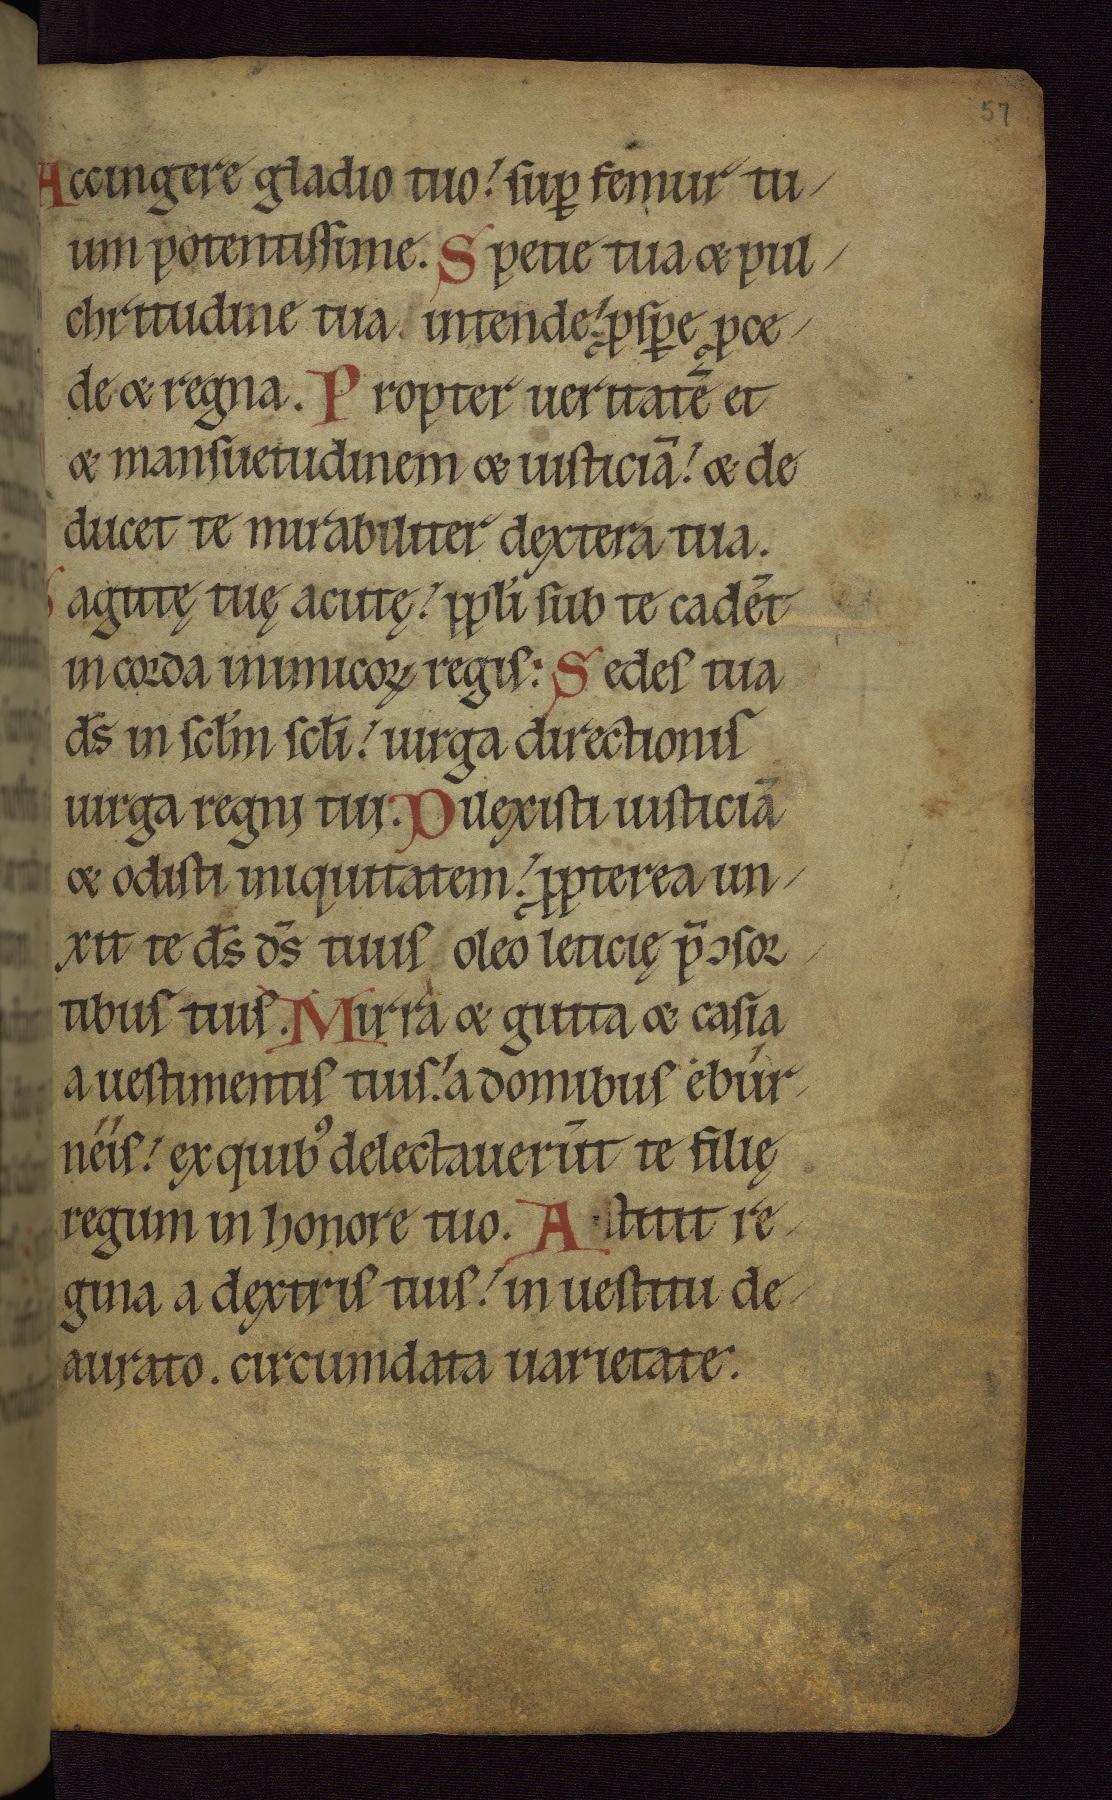 57
Accingere gladio tuo! sup̱ femur tu-
um potentissime. Spetie tua & pul-
chritudine tua intende! ꝓsp̱e ꝓce-
de & regna. Propter ueritatē et
& mansuetudinem & iusticiā! & de
ducet te mirabiliter dextera tua.
Sagitę tuę acutę! ppl̄i sub te cadēt
in corda inimicoꝝ regis: Sedes tua
d̄s in scl̄m scl̄i! uirga directionis
uirga regni tui. Dilexisti iusticiā
& odisti iniquitatem! ꝓpterea un-
xit te d̄s d̄s tuus oleo leticię p̄ ↄsor-
tibus tuis. Mirra & gutta & casia
a uestimentis tuis! a domibus ebúr-
neis! ex quibꝰ delectauerūt te filię
regum in honore tuo. Astitit re-
gina a dextris tuis! in uestitu de-
aurato. circumdata uarietate.